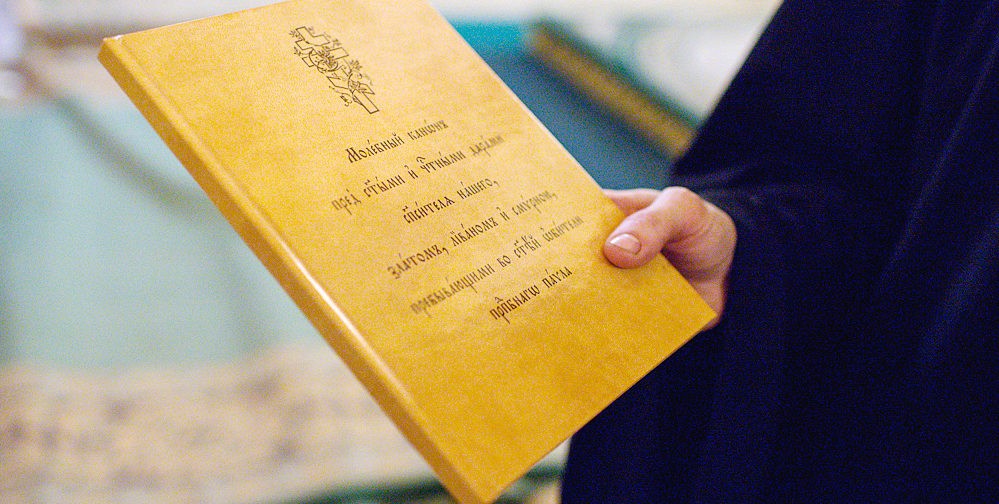 Моле́бный канѡ́нъ
пред̾ ст҃ы́ми и҆ чⷭ҇тны́ми дара́ми
сп҃си́телѧ на́шегѡ,
зла́томъ, лїва́номъ и҆ смѵ́рною,
пребыва́ющими во ст҃ѣ́й ѡ҆би́тели
прпⷣбнагѡ па́ѵла